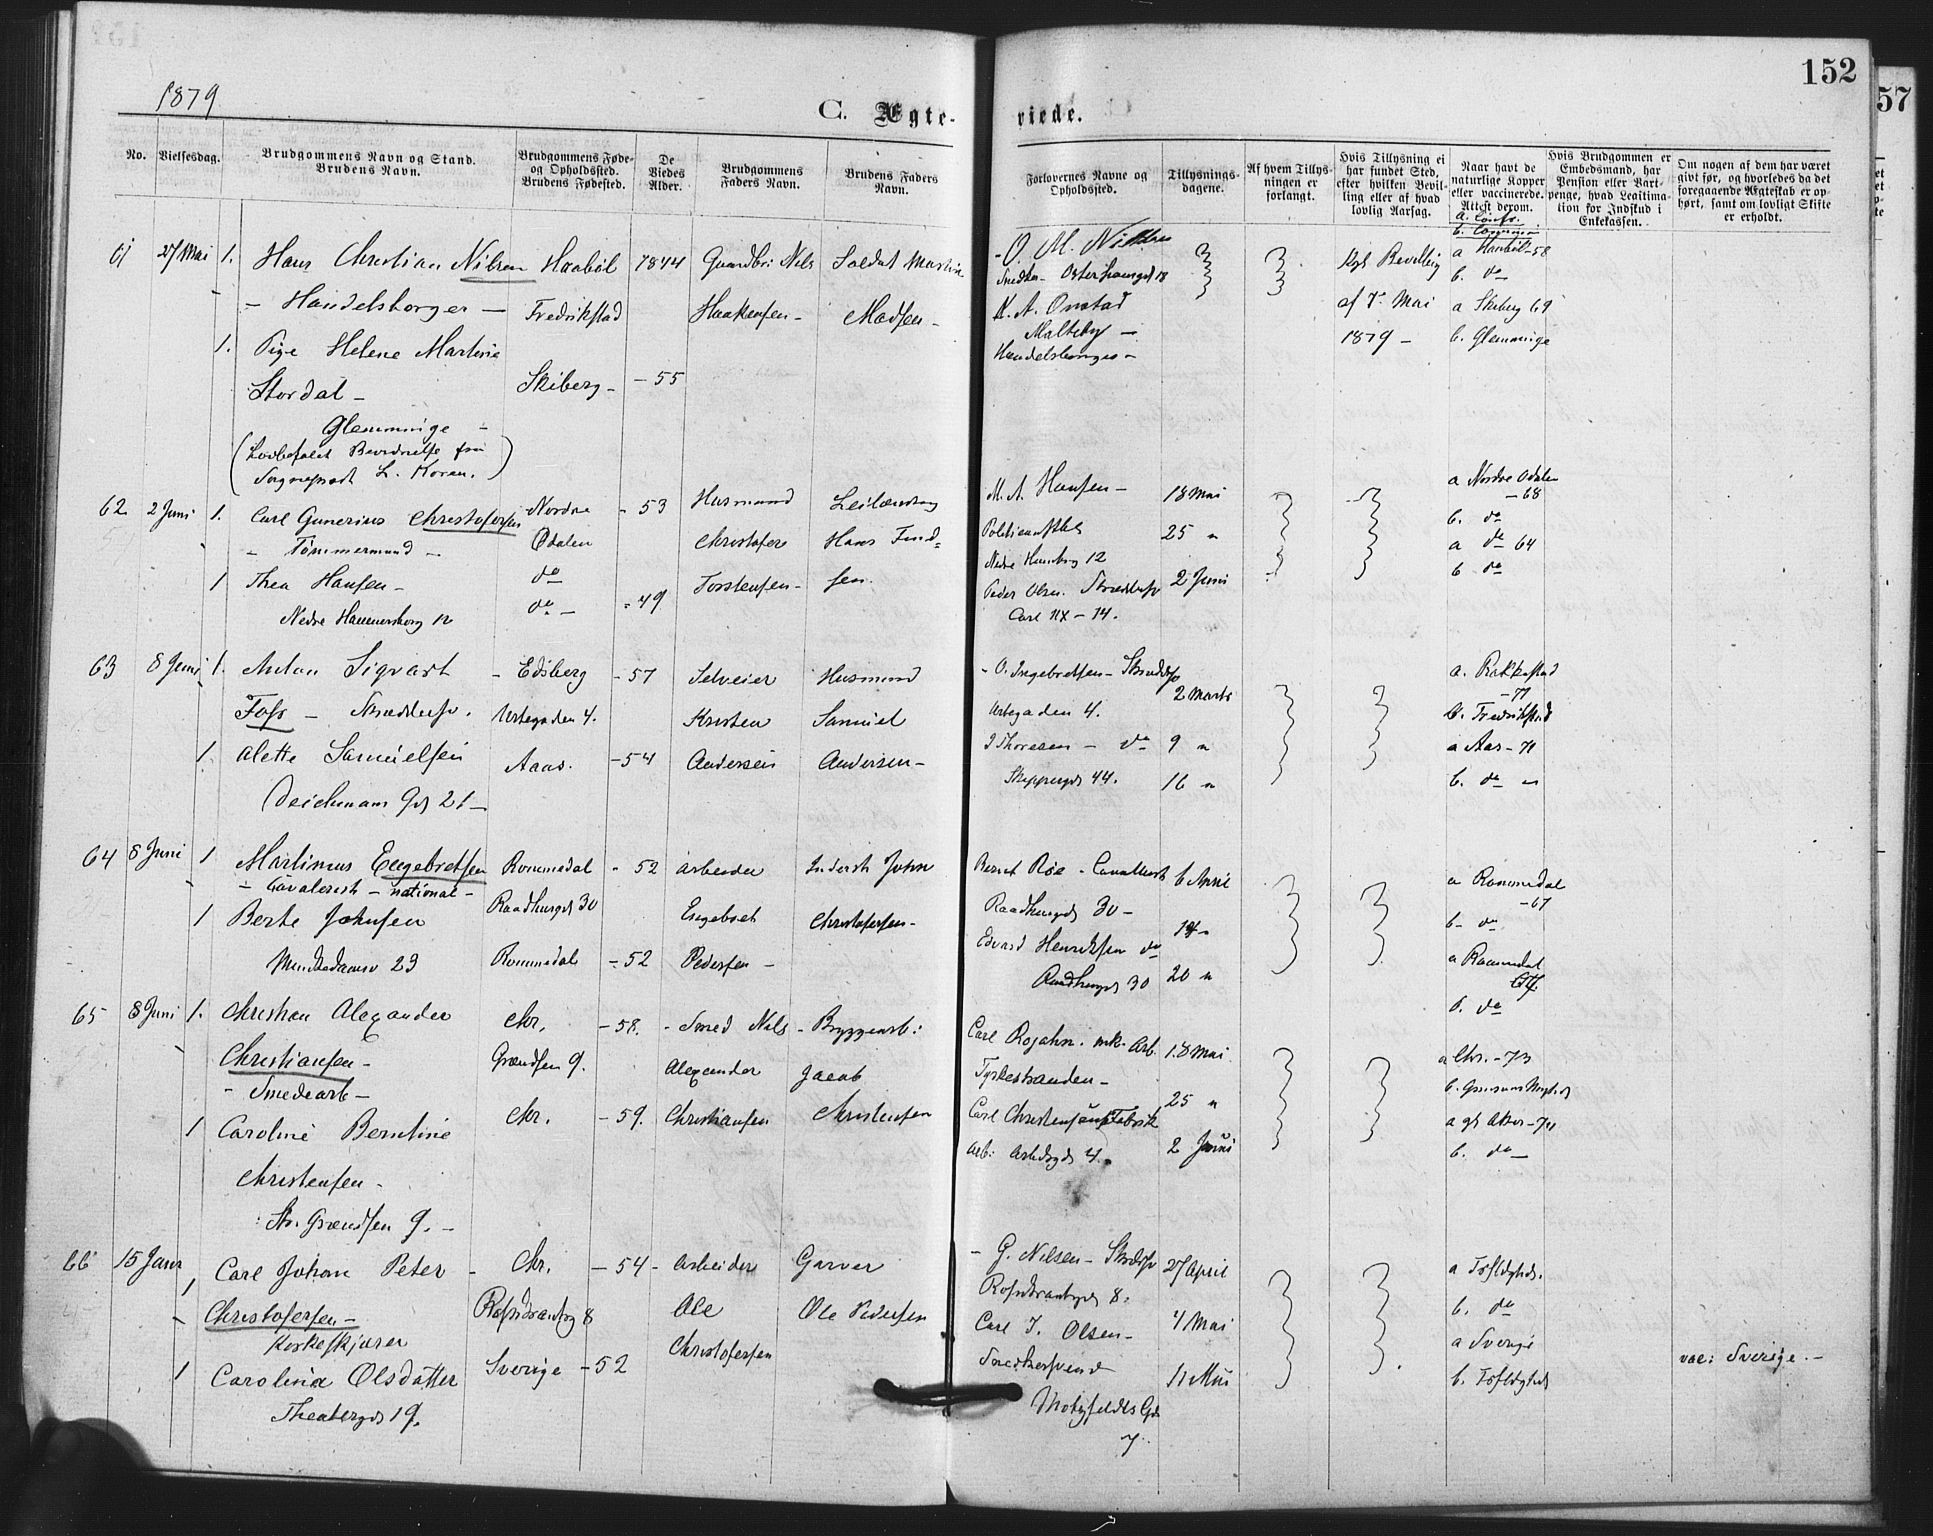 1879
152
57
C. Ægte-
viede.
No.
Vielsesdag.
Brudgommens Navn og Stand.
Brudens Navn.
Brudgommens Føde-
og Opholdssted.
Brudens Fødested.
De
Viedes
Alder.
Brudgommens
Faders Navn.
Brudens Faders
Navn.
Forlovernes Navne og
Opholdssted.
Tillysnings-
dagene.
Af hvem Tillys-
ningen er
forlangt.
Hvis Tillysning ei
har fundet Sted,
efter hvilken Bevil-
ling eller af hvad
lovlig Aarsag.
Naar havt de
naturlige Kopper
eller vaccinerede.
Attest derom.
Hvis Brudgommen er
Embedsmand, har
Pension eller Vart-
penge, hvad Legitima-
tion for Indskud i
Enkekassen.
Om nogen af dem har været
givt før, og hvorledes da det
foregaaende Ægteskab er op-
hørt, samt om lovligt Skifte
er erholdt.
61 27 Mai 1. Hans Christian Nilsen
- Handelsborger -
1. Pige Helene Martine
Stordal -
Glemminge -
(Lovbefalet Bevidnelse fra
Sogneprest L. Koren.)
Haabøl
Fredrikstad
Skiberg -
1844
- 55
Gaardbr: Nils
Haakensen -
Soldat Martin
Madsen -
- O. M. Nilsen
K. A. Onstad
Malteby -
Handelsborger -
Kgl Bevilling
af 7. Mai
1879 -
a Haabøl - 58
b. do
a Skiberg 69
b. Glemminge
62 2 Juni 1. Carl Gunerius Christofersen
- Tømmermand -
1 Thea Hansen -
Nedre Hammersborg 12
Nordre
Odalen
do
do -
- 53
- 49
Husmand
Christofer
Torstensen -
Leilænding
Hans Fred-
sen.
M. A. Hansen -
Nedre Hambrg 12
Peder Olsen
Carl XII - 14.
18 Mai
25 "
2 Juni
a Nordre Odalen
- 68
b. do
a do 64
b do
63 8 Juni 1. Anton Sigvart
Foss - Skræddersv.
1. Alette Samuelsen
Deichmans Gd 21 -
- Edsberg
Urtegaden 4.
Aaas.
- 57
- 54
Selveier
Kristen
Andersen
Husmand
Samuel
Andersen -
- O. Ingebretsen -
Urtegaden 4.
J Thoresen - do
Skippergd 44.
2 Marts
9 "
16 "
a. Rakkestad
- 71
b. Fredrikstad
a Aas - 71
b. do "
64 8 Juni 1 Martinus Engebretsen
- Cavalerist - national -
1 Berte Johnsen
Munkedamsv 23
Rommedal
Raadhusgd 30
Rommedal
- 52
- 52
Arbeider
Engebret
Pedersen -
Inderst John
Christofersen -
Bernt Roe - Cavallerist
Raadhusgd 30 -
Edvard Henriksen do
Raadhusgd 30
6 April
14 "
20 "
a Rommedal
- 67
b - do
a Rommedal
b. do
65 8 Juni 1. Christian Alexander
Christiansen -
- Smedearb -
1 Caroline Berntine
Christensen -
St. Grændsen 9. -
Chr.
Grændsen 9.
Chr.
- 58.
- 59.
- Smed Nils
Alexander
Christiansen
- Bryggearb:
Jacob
Christensen
Carl Rojahn. mk. Arb.
Tyskestranden -
Carl Christensen Fabrik
Arb:
18 Mai
25 "
2 Juni
a Chr. - 73
a gl Aker - 74
b. do -
66 15 Juni 1 Carl Johan Peter
Christofersen -
Korkeskjærer
1 Carolina Olsdatter
Theatergd 19.
- Chr.
Sverige
- 54
- 52
- Arbeider
Ole
Christofersen
Garver
Ole Pedersen
- G. Nilsen -
Carl J. Olsen -
Snedkersvend
Motzfeldts Gd
7.
27 April
4 Mai
11 Mai
b. do
a Sverige
vac: Sverige. -